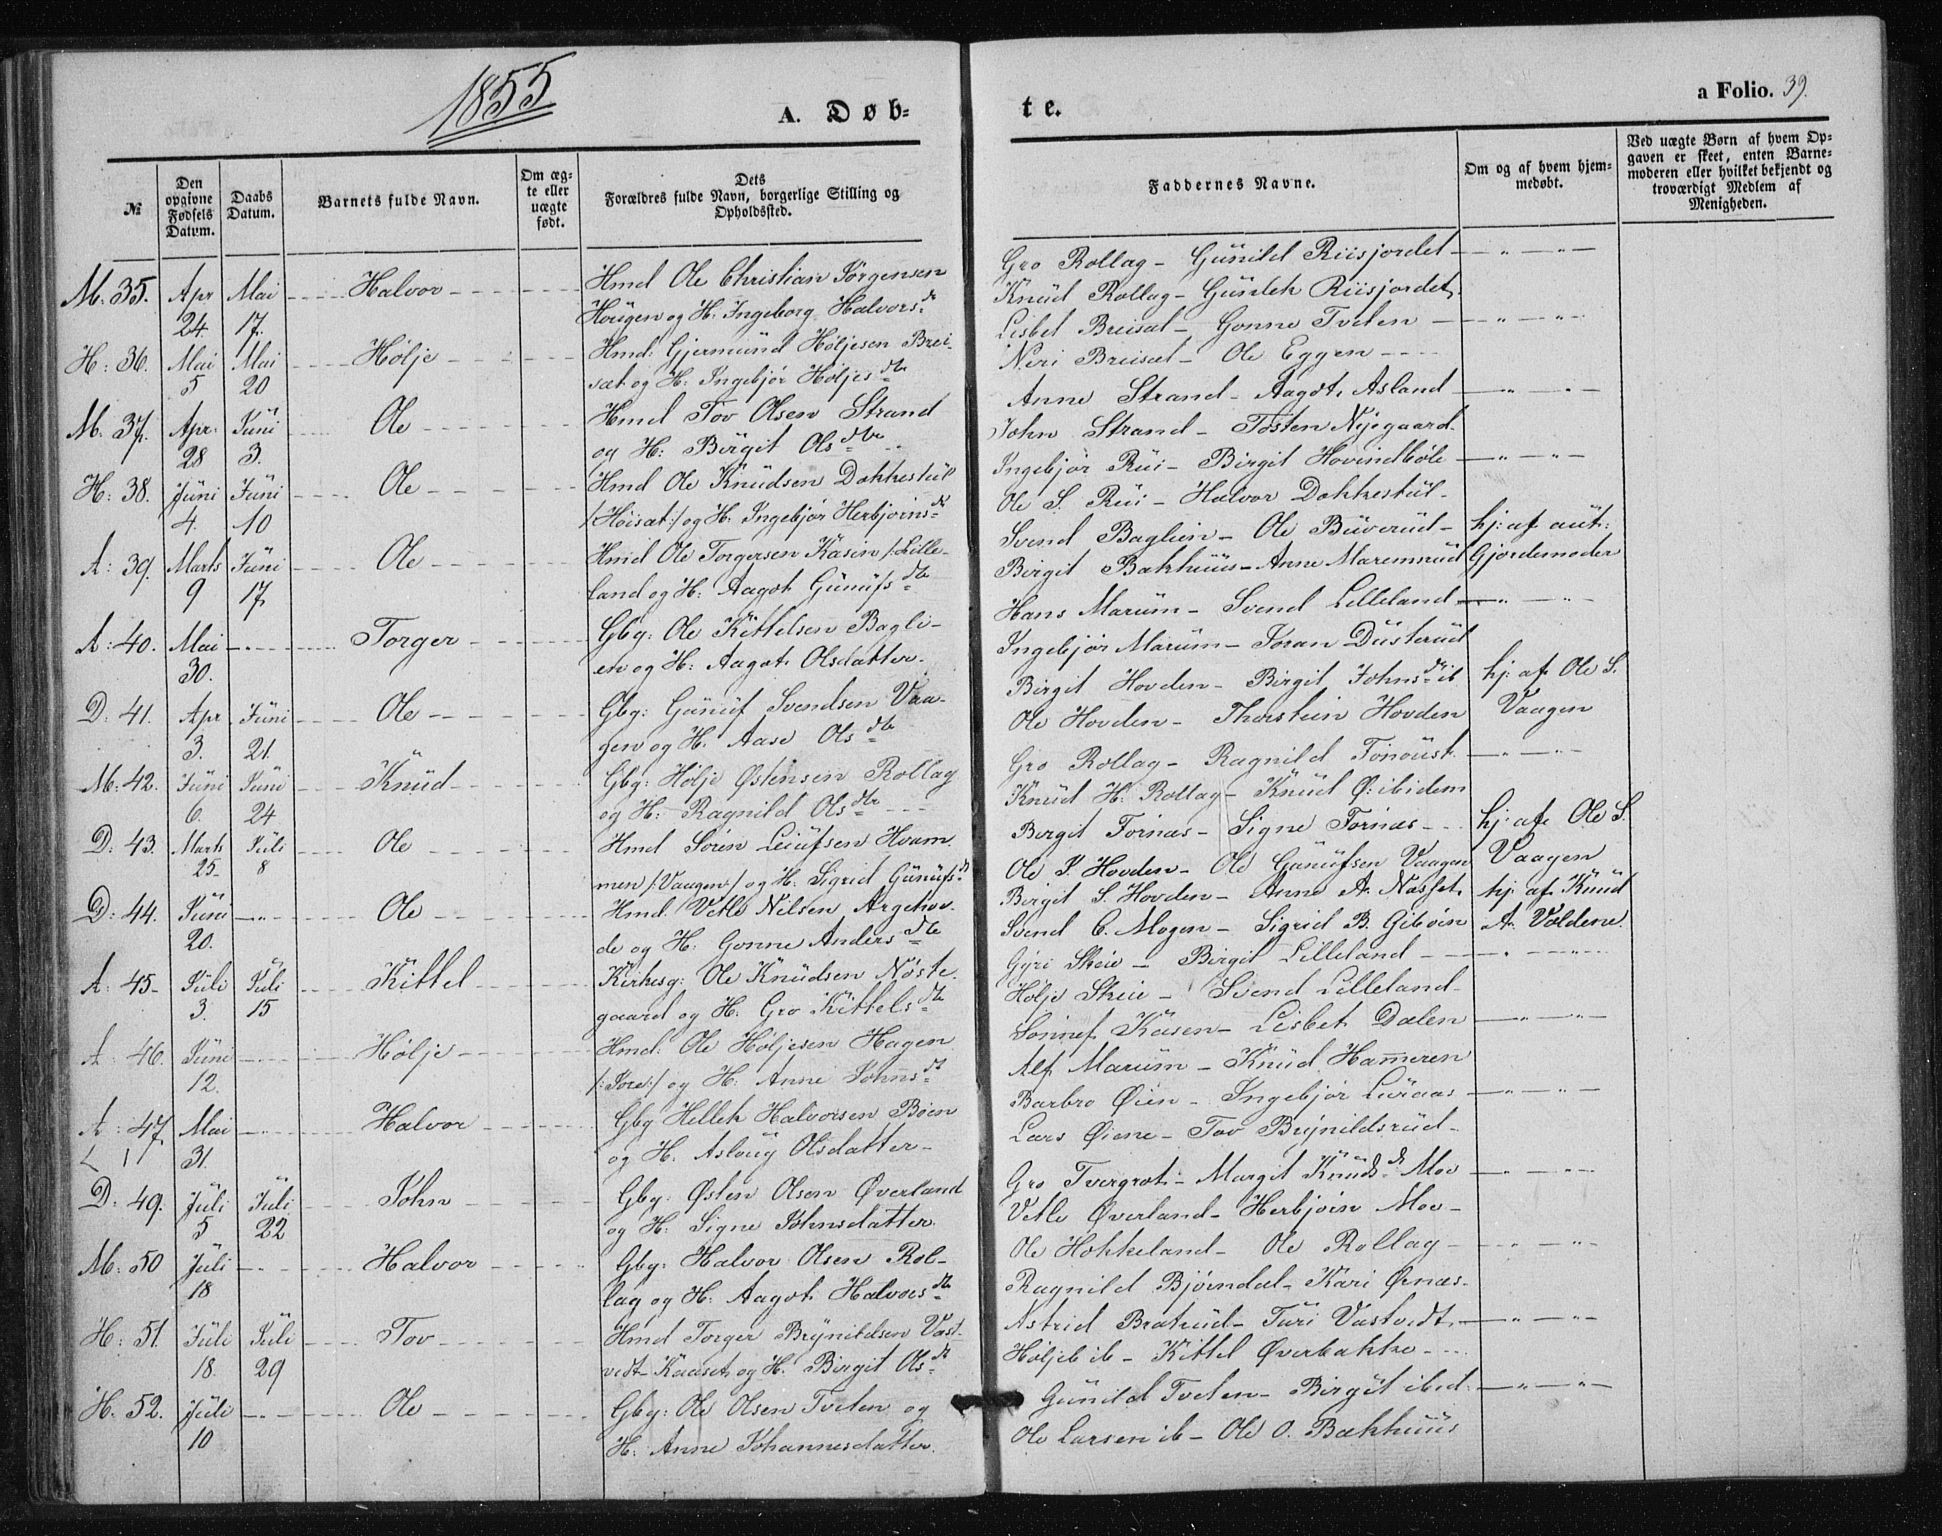 1855
A. Døb-
te.
a Folio. 39.
№
Den opgivne Fødsels Datum.
Daabs Datum.
Barnets fulde Navn.
Om ægte eller uægte født.
Dets
Forældres fulde Navn, borgerlige Stilling og
Opholdssted.
Faddernes Navne.
Om og af hvem hjem-
medøbt.
Ved uægte Børn af hvem Op-
gaven er skeet, enten Barne-
moderen eller hvilket bekjendt og
troværdigt Medlem af
Menigheden.
M. 35. Apr 24. Mai 17. Halvor
Hmd Ole Christian Jørgensen
Hougen og H. Ingeborg Halvorsdr
Gro Rollag - Gunild Riisjordet
Knud Rollag - Gunlek Riisjordet
H: 36. Mai 5 Mai 20 Hølje
Hmd: Gjermund Høljesen Brei-
sæt og H: Ingebjør Høljesdtr
Lisbet Breisæt - Gonne Tveten
Neri Breisæt - Ole Eggen
M. 37. Apr. 28 Juni 3. Ole
Hmd Tov Olsen Strand
og H: Birgit Olsdtr
Anne Strand - Aagot Asland
John Strand - Tosten Nyegaard
H: 38. Juni 4. Juni 10 Ole
Hmd Ole Knudsen Dokkestul
/:Høisæt:/ og H. Ingebjør Herbjørnsdr
Ingebjør Rui - Birgit Hovindbøle
Ole S. Rui - Halvor Dokkestul
A: 39. Marts 9 Juni 17 Ole
Hmd Ole Torgersen Kasin /:Lille-
land og H: Aagot Gunufsdtr
Svend Baglien - Ole Buverud
Birgit Bakhuus - Anne Maremrud
hj: af aut:
Gjordemoder
A: 40. Mai 30. Torger
Gbg: Ole Kittelsen Bagli-
en og H: Aagot Olsdatter.
Hans Marum - Svend Lilleland
Ingebjør Marum - Joran Dusterud
D: 41. Apr 3. Juni 21. Ole
Gbg: Gunuf Svendsen Vaa-
gen og H. Aase Olsdtr
Birgit Hovden - Birgit Johnsdr ib
Ole Hovden - Thorstein Hovden
hj: af Ole S.
Vaagen
M: 42. Juni 6. Juni 24 Knud
Gbg: Hølje Østensen Rollag
og H: Ragnild Olsdtr
Gro Rollag - Ragnild Tonoust
Knud H: Rollag - Knud Ø: ibidem
D: 43. Marts 25 Juli 8 Ole
Hmd Søren Leiufsen Hvam-
men /:Vaagen:/ og H. Sigrid Gunufsdr
Birgit Fornæs - Signe Fornæs
Ole S. Hovden - Ole Gunufsen Vaagen
hj: af Ole S.
Vaagen
D: 44. Juni 20. Ole
Hmd. Vetle Nilsen Argehov-
de og H: Gonne Andersdtr
Birgit S. Hovden - Anne A. Næsset
Svend C. Mogen - Sigrid B. Gibøin
hj: af Knud
A. Voldene.
A: 45 Juli 3. Juli 15 Kittel
Kirkesg: Ole Knudsen Nøste-
gaard og H. Gro Kittelsdtr
Gyri Skeie - Birgit Lilleland
Hølje Skeie - Svend Lilleland
A: 46. Juni 12. Hølje
Hmd: Ole Høljesen Hagen
/:Fore:/ og H: Anne Johnsdr
Sønnef Kasen - Lisbet Dalen
Alf Marum - Knud Hammeren
A: 47 Mai 31. Halvor
Gbg Hellek Halvorsen Bøen
og H. Asloug Olsdatter
Barbro Øien - Ingebjør Luraas
Lars Øiene - Tov Brynildsrud
D: 49. Juli 5 Juli 22 John
Gbg: Østen Olsen Øverland
og H: Signe Johnsdatter.
Gro Tvergrot - Margit Knudsdr Moe
Vetle Øverland - Herbjørn Moe
M: 50 Juli 18 Halvor
Gbg: Halvor Olsen Rol-
lag og H: Aagot Halvorsdtr
Ole Hokkeland - Ole Rollag
Ragnild Bjørndal - Kari Ørnæs
H: 51. Juli 18. Juli 29 Tov
Hmd Torger Brynildsen Vast-
vedt Kaaset og H. Birgit Olsdr
Astrid Bratrud - Turi Vastvedt
Hølje ib ib - Kittel Øverbakke
H: 52. Juli 10 Ole
Gbg: Ole Olsen Tveten og
H. Anne Johannesdatter.
Gunild Tveten - Birgit ibid.
Ole Larsen ib - Ole O. Bækhuus